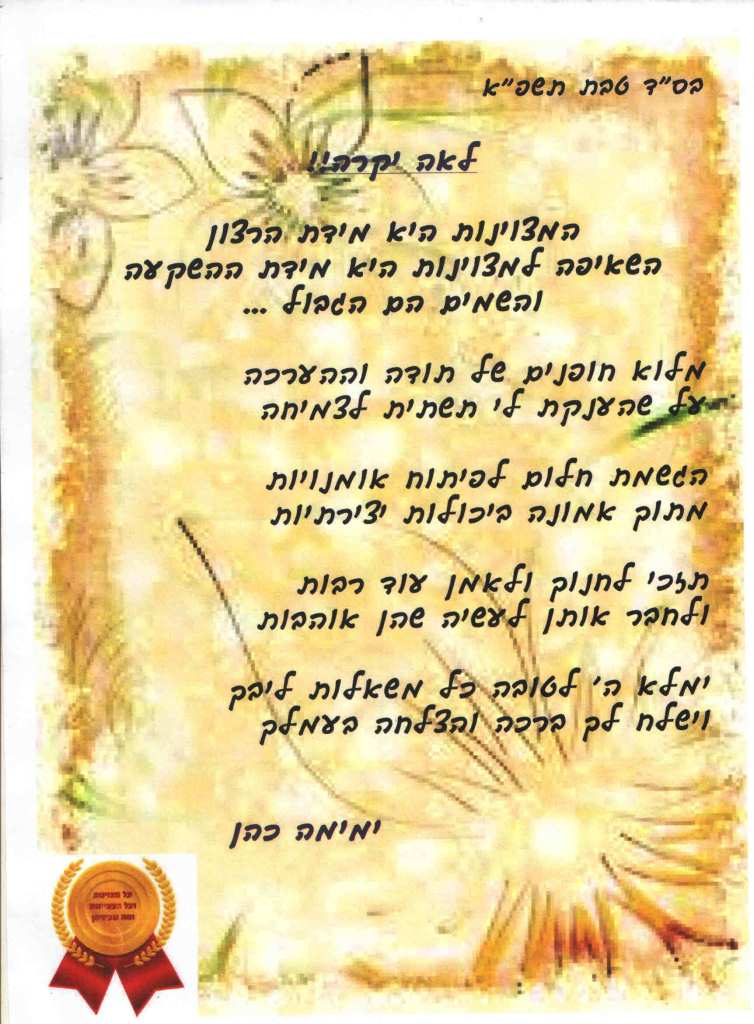 בס"ד טבת תשפ"א
לאה יקרה!!
המצוינות היא מידת הרצון
השאיפה למצוינות היא מידת ההשקעה
והשמים הם הגבול ...
מלוא חופנים של תודה וההערכה
על שהענקת לי תשתית לצמיחה
הגשמת חלום לפיתוח אומנויות
מתוך אמונה ביכולות יצירתיות
תזכי לחנוך ולאמן עוד רבות
ולחבר אותן לעשיה שהן אוהבות
ימלא ה' לטובה כל משאלות ליבך
וישלח לך ברכה והצלחה בעמלך
ימימה כהן
על מצוינות